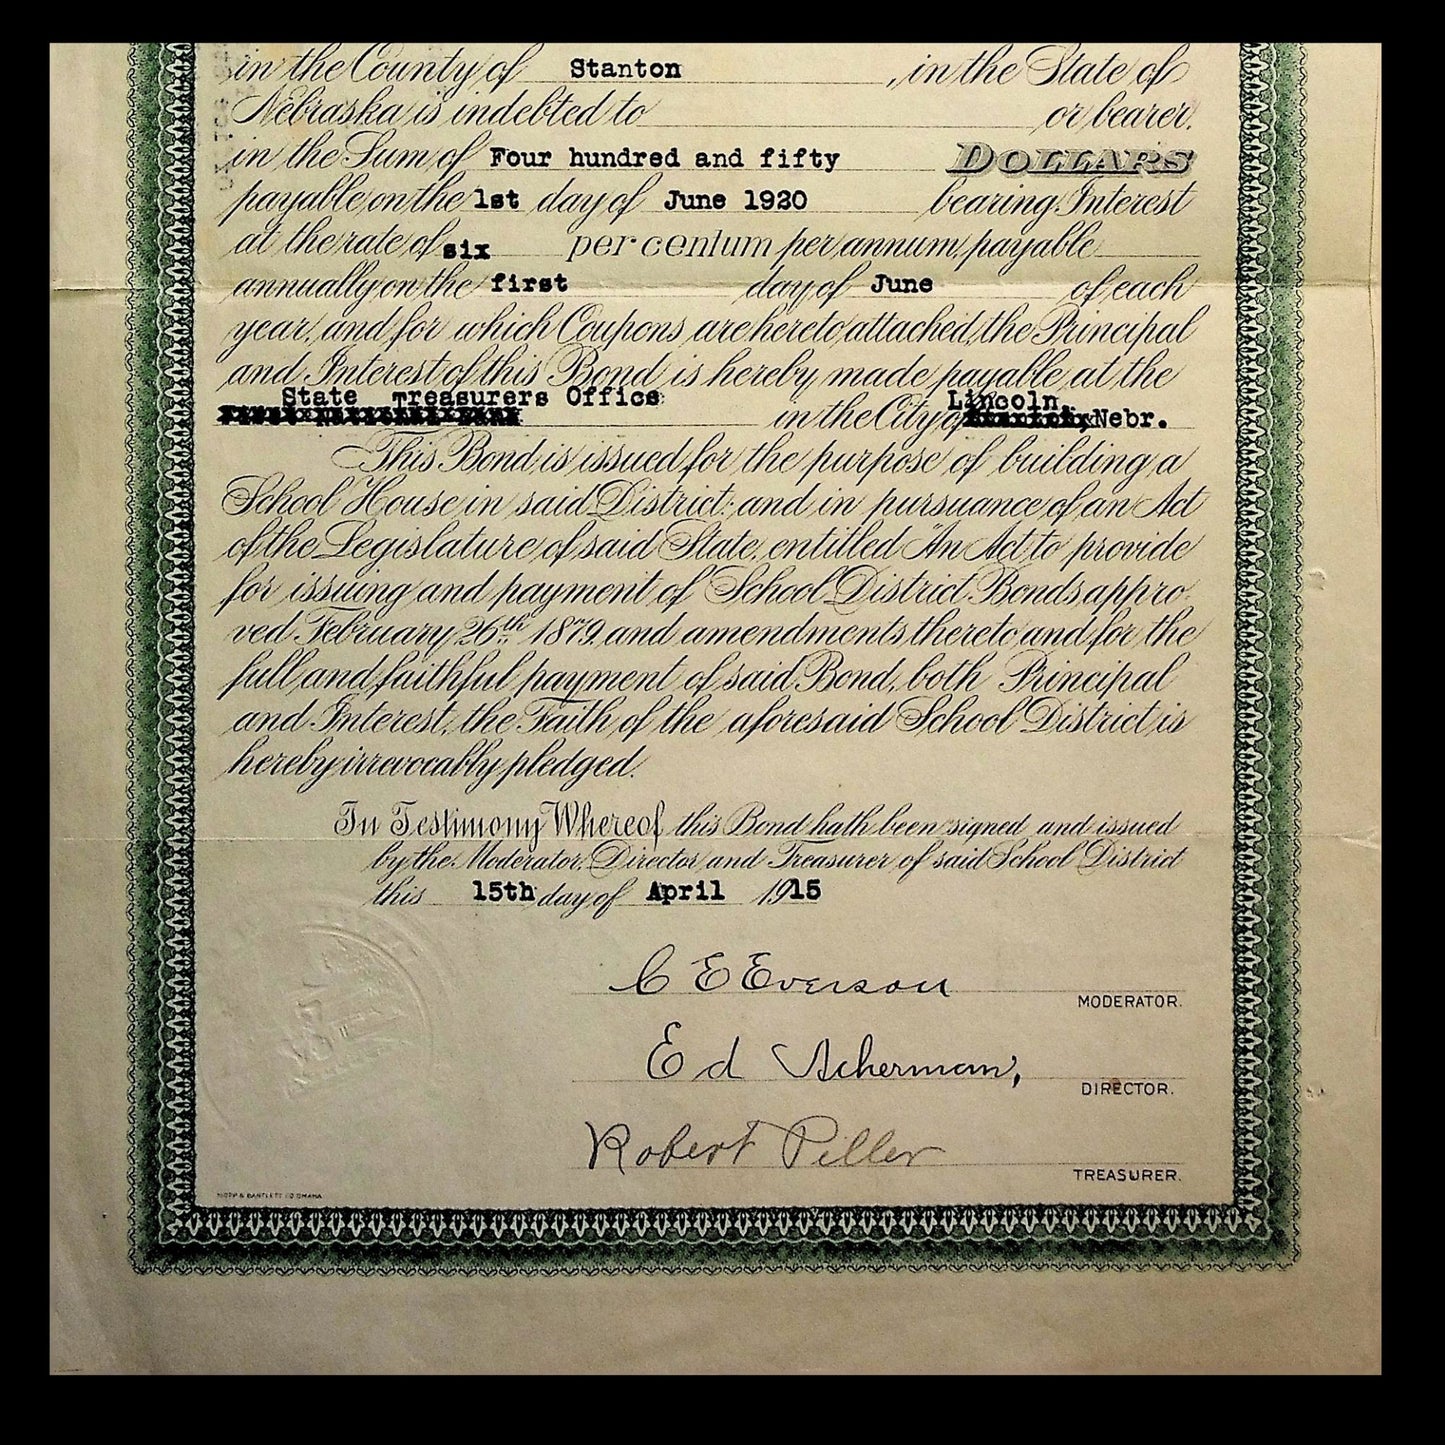 in the County of Stanton , in the State of
Nebraska is indebted to or bearer.
in the Sum of Four hundred and fifty DOLLARS
payable on the 1st day of June 1920 bearing Interest
at the rate of six per centum per annum, payable
annually on the first day of June of each
year, and for which Coupons are hereto attached, the Principal
and Interest of this Bond is hereby made payable at the
State Treasurers Office Lincoln,
in the City of Nebr.
This Bond is issued for the purpose of building a
School House in said District; and in pursuance of an Act
of the Legislature of said State, entitled "An Act to provide
for issuing and payment of School District Bonds, appro-
ved February 26th 1879, and amendments thereto and for the
full and faithful payment of said Bond, both Principal
and Interest, the Faith of the aforesaid School District is
hereby irrevocably pledged.
In Testimony Whereof this Bond hath been signed and issued
by the Moderator, Director and Treasurer of said School District
this 15th day of April 1915
C E Everson
MODERATOR.
Ed Ackerman,
DIRECTOR.
Robert Piller
TREASURER.
& BARTLETT CO OMAHA